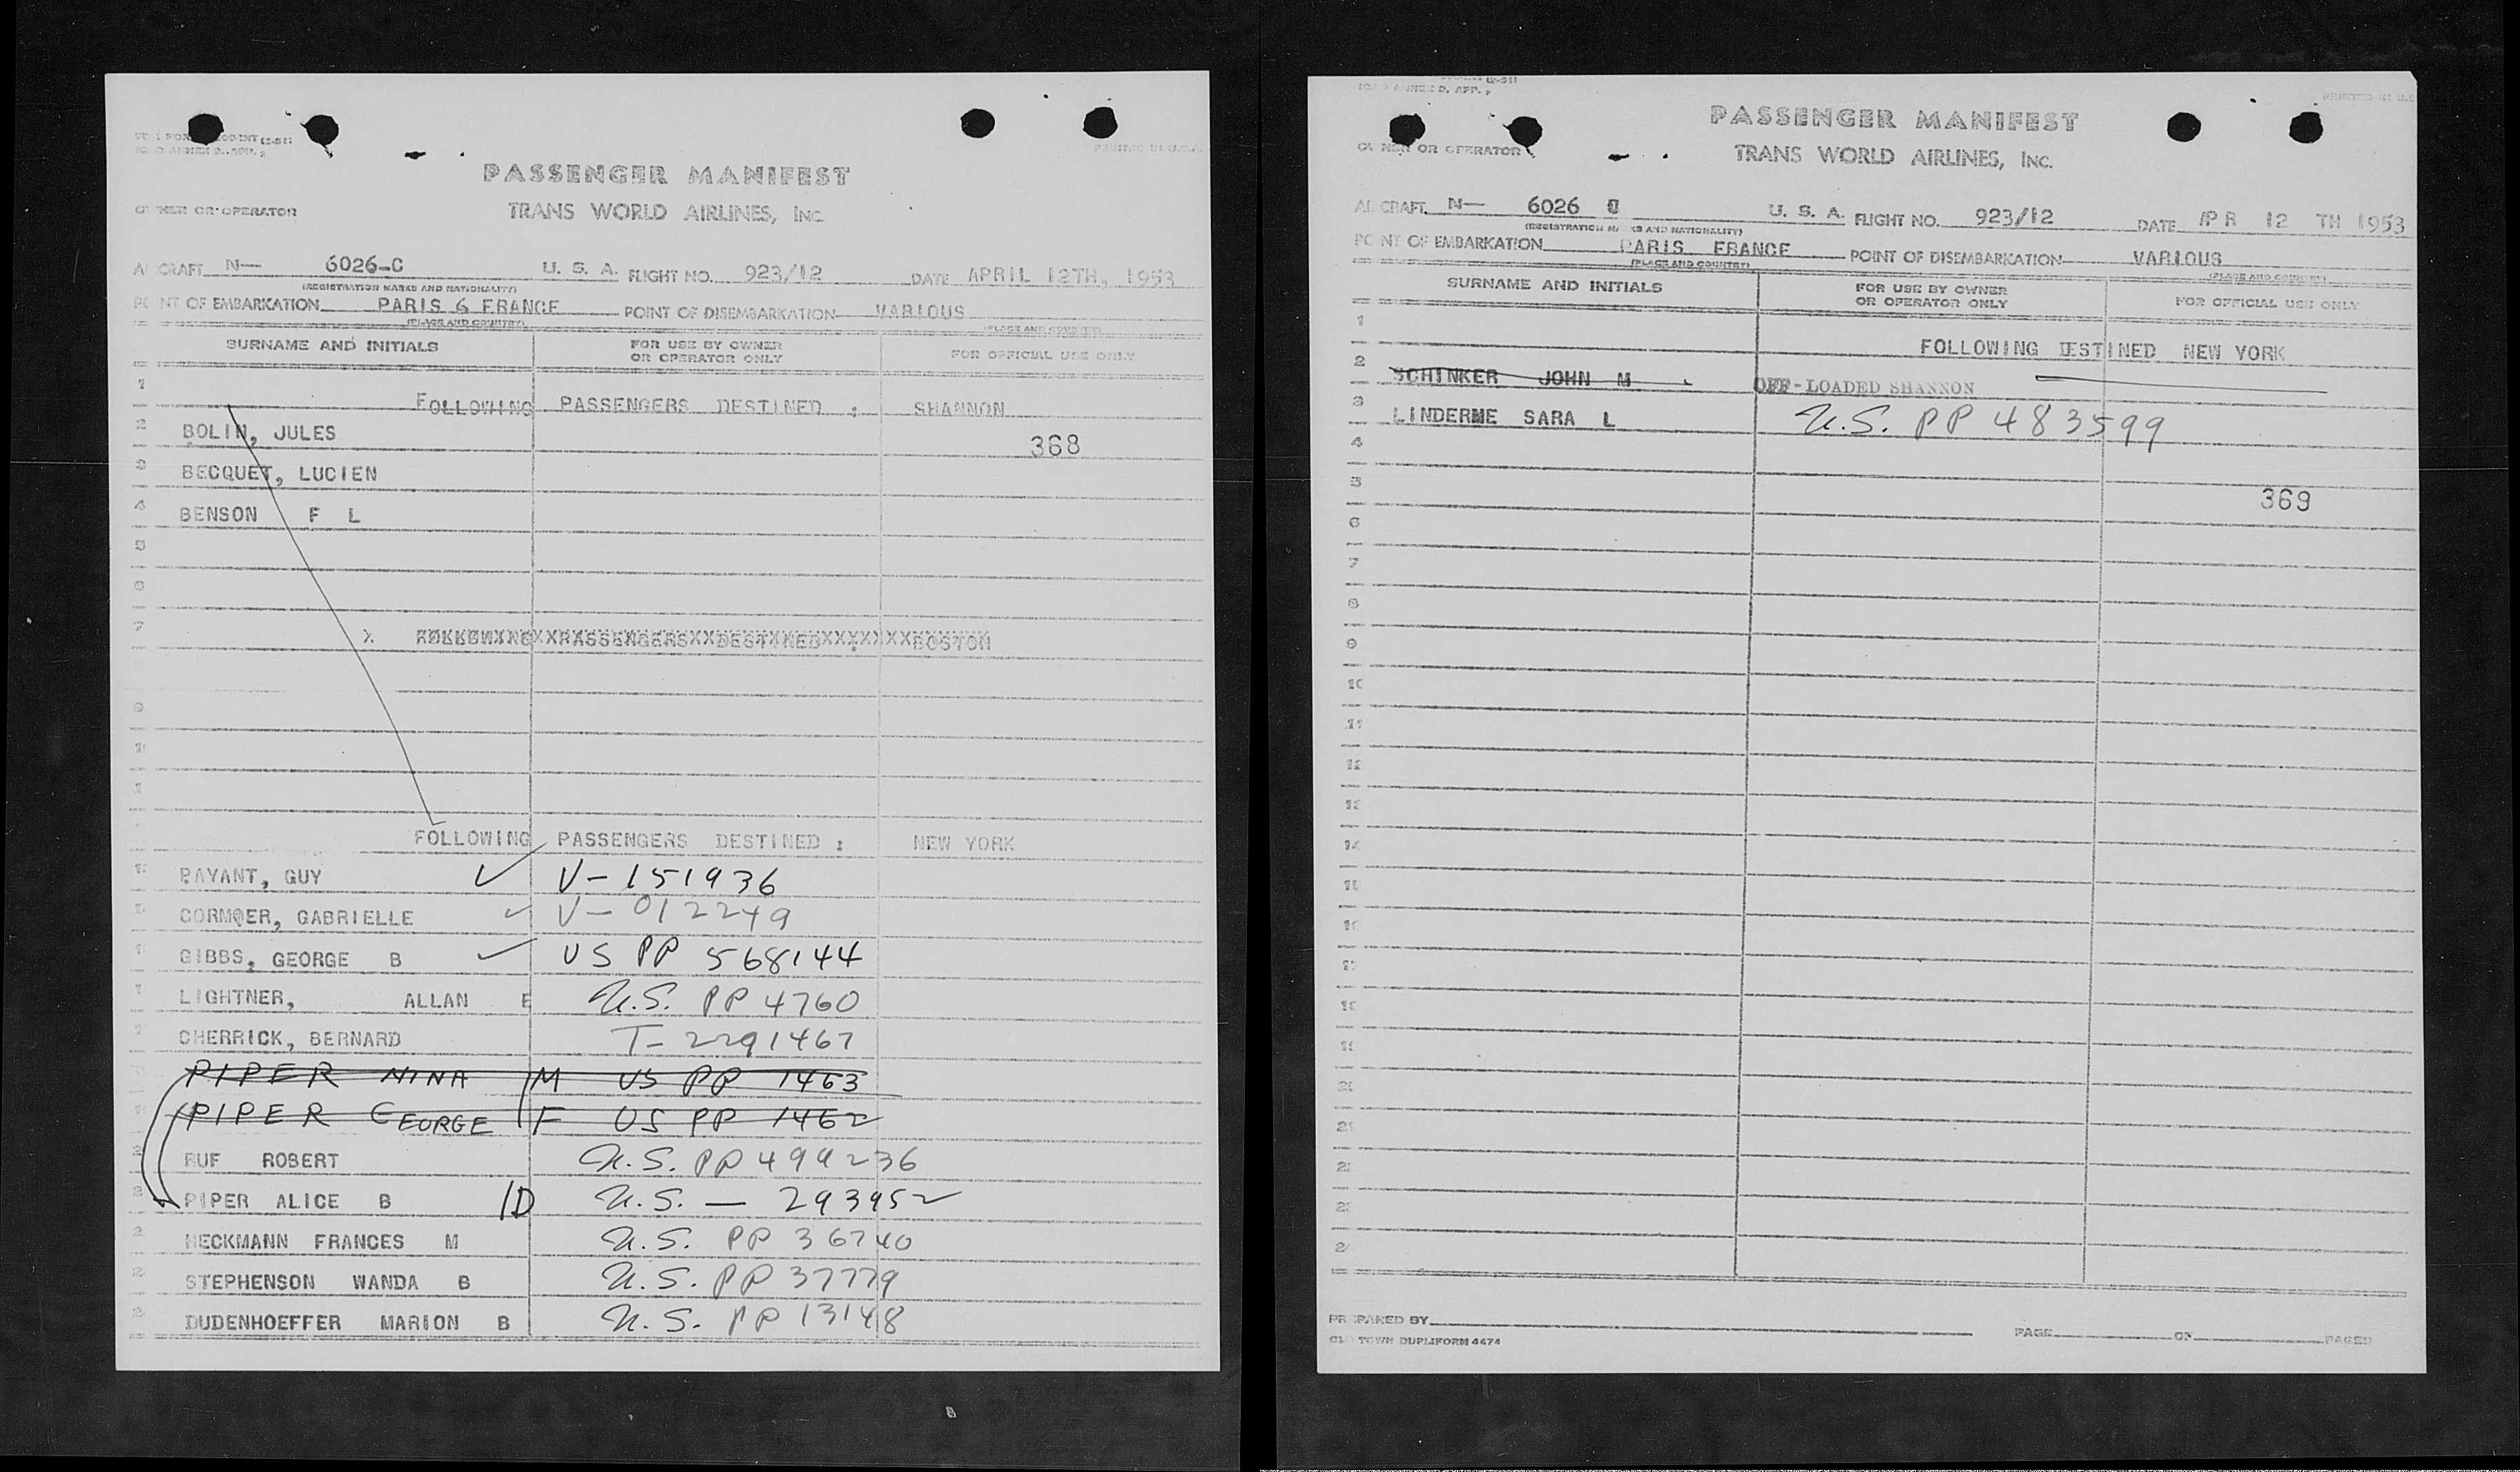 PASSENGER MANIFEST
TRANS WORLD AIRLINES, INC.
OWNER OR OPERATOR
PRINTED IN U.S.A.
AIRCRAFT N— 6026-C U. S. A. FLIGHT NO. 923/12 DATE APRIL 12TH, 1953
(REGISTRATION MARKS AND NATIONALITY)
POINT OF EMBARKATION PARIS & FRANCE POINT OF DISEMBARKATION VARIOUS
(PLACE AND COUNTRY) (PLACE AND COUNTRY)
SURNAME AND INITIALS FOR USE BY OWNER OR OPERATOR ONLY FOR OFFICIAL USE ONLY
1
FOLLOWING PASSENGERS DESTINED : SHANNON
2 BOLIN, JULES 368
3 BECQUET, LUCIEN
4 BENSON F L
5
6
7
FOLLOWING PASSENGERS DESTINED : BOSTON
9
FOLLOWING PASSENGERS DESTINED : NEW YORK
PAYANT, GUY V-151936
CORMOER, GABRIELLE V-012249
GIBBS, GEORGE B US PP 568144
LIGHTNER, ALLAN E U.S. PP 4760
CHERRICK, BERNARD T-2291467
PIPER NINA M US PP 1463
PIPER GEORGE F US PP 1462
RUF ROBERT U.S. PP 494236
PIPER ALICE B /D U.S. — 293952
HECKMANN FRANCES M U.S. PP 36740
STEPHENSON WANDA B U.S. PP 37779
DUDENHOEFFER MARION B U.S. PP 13148
ICAO ANNEX 9, APP.
PRINTED IN U.S.
PASSENGER MANIFEST
OWNER OR OPERATOR TRANS WORLD AIRLINES, INC.
AIRCRAFT N— 6026 C U. S. A. FLIGHT NO. 923/12 DATE APR 12 TH 1953
(REGISTRATION MARKS AND NATIONALITY)
POINT OF EMBARKATION PARIS FRANCE POINT OF DISEMBARKATION VARIOUS
(PLACE AND COUNTRY) (PLACE AND COUNTRY)
SURNAME AND INITIALS FOR USE BY OWNER OR OPERATOR ONLY FOR OFFICIAL USE ONLY
1
FOLLOWING DESTINED NEW YORK
2 SCHINKER JOHN M OFF-LOADED SHANNON
3 LINDERME SARA L U.S. PP 483599
4
5 369
6
7
8
9
10
11
12
13
14
PREPARED BY PAGE OF PAGES
OLD TOWN DUPLIFORM 4474